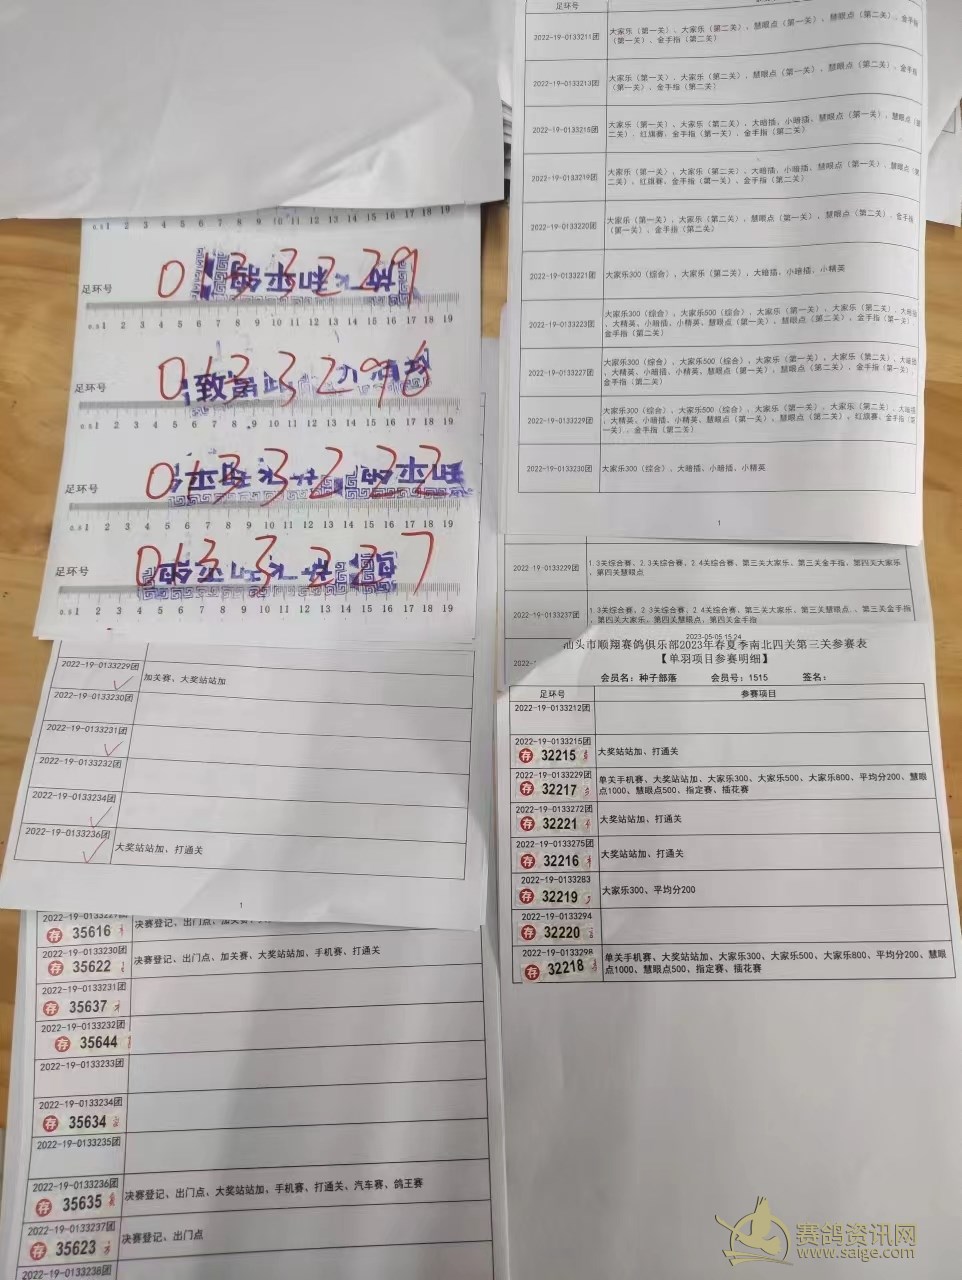 足环号
2022-19-0133211团
大家乐（第一关）、大家乐（第二关）、慧眼点（第一关）、慧眼点（第二关）、金手指
（第一关）、金手指（第二关）
2022-19-0133213团
大家乐（第一关）、大家乐（第二关）、慧眼点（第一关）、慧眼点（第二关）、金手指
（第一关）、金手指（第二关）
2022-19-0133216团
大家乐（第一关）、大家乐（第二关）、大暗插、小暗插、慧眼点（第一关）、慧眼点（第
二关）、红旗赛、金手指（第一关）、金手指（第二关）
2022-19-0133219团
大家乐（第一关）、大家乐（第二关）、大暗插、小暗插、慧眼点（第一关）、慧眼点（第
二关）、红旗赛、金手指（第一关）、金手指（第二关）
2022-19-0133220团
大家乐（第一关）、大家乐（第二关）、慧眼点（第一关）、慧眼点（第二关）、金手指
（第一关）、金手指（第二关）
2022-19-0133221团
大家乐300（综合）、大家乐（第二关）、大暗插、小暗插、小精英
2022-19-0133223团
大家乐300（综合）、大家乐500（综合）、大家乐（第一关）、大家乐（第二关）、大暗插
、大精英、小暗插、小精英、慧眼点（第一关）、慧眼点（第二关）、金手指（第一关）、
金手指（第二关）
2022-19-0133227团
大家乐300（综合）、大家乐500（综合）、大家乐（第一关）、大家乐（第二关）、大暗插
、大精英、小暗插、小精英、慧眼点（第一关）、慧眼点（第二关）、金手指（第一关）、
金手指（第二关）
2022-19-0133229团
大家乐300（综合）、大家乐500（综合）、大家乐（第一关）、大家乐（第二关）、大暗插
、大精英、小暗插、小精英、慧眼点（第一关）、慧眼点（第二关）、红旗赛、金手指（第
一关）、金手指（第二关）
2022-19-0133230团
大家乐300（综合）、大暗插、小暗插、小精英
1
0.5 1 2 3 4 5 6 7 8 9 10 11 12 13 14 15 16 17 18 19
足环号
0133229
0.5 1 2 3 4 5 6 7 8 9 10 11 12 13 14 15 16 17 18 19
足环号
0133298
0.5 1 2 3 4 5 6 7 8 9 10 11 12 13 14 15 16 17 18 19
足环号
0133223
0.5 1 2 3 4 5 6 7 8 9 10 11 12 13 14 15 16 17 18 19
足环号
0133227
0.5 1 2 3 4 5 6 7 8 9 10 11 12 13 14 15 16 17 18 19
2022-19-0133229团
1.3关综合赛、2.3关综合赛、2.4关综合赛、第三关大家乐、第三关金手指、第四关大家乐
、第四关慧眼点
2022-19-0133237团
1.3关综合赛、2.3关综合赛、2.4关综合赛、第三关大家乐、第三关慧眼点、第三关金手指
、第四关大家乐、第四关慧眼点、第四关金手指
2023-05-05 15:24
汕头市顺翔赛鸽俱乐部2023年春夏季南北四关第三关参赛表
【单羽项目参赛明细】
会员名：种子部落 会员号：1515 签名：
足环号 参赛项目
2022-19-0133212团
2022-19-0133215团
存 32215
大奖站站加、打通关
2022-19-0133229团
存 32217
单关手机赛、大奖站站加、大家乐300、大家乐500、大家乐800、平均分200、慧眼
点1000、慧眼点500、指定赛、插花赛
2022-19-0133272团
存 32221
大奖站站加、打通关
2022-19-0133275团
存 32216
大奖站站加、打通关
2022-19-0133283
存 32219
大家乐300、平均分200
2022-19-0133294
存 32220
2022-19-0133298
存 32218
单关手机赛、大奖站站加、大家乐300、大家乐500、大家乐800、平均分200、慧眼
点1000、慧眼点500、指定赛、插花赛
2022-19-0133229团
加关赛、大奖站站加
2022-19-0133230团
2022-19-0133231团
2022-19-0133232团
2022-19-0133234团
2022-19-0133236团
大奖站站加、打通关
1
2022-19-0133229团
存 35616
决赛登记、出门点、加关赛
2022-19-0133230团
存 35622
决赛登记、出门点、加关赛、大奖站站加、手机赛、打通关
2022-19-0133231团
存 35637
2022-19-0133232团
存 35644
2022-19-0133233团
2022-19-0133234团
存 35634
2022-19-0133235团
2022-19-0133236团
存 35635
决赛登记、出门点、大奖站站加、手机赛、打通关、汽车赛、鸽王赛
2022-19-0133237团
存 35623
决赛登记、出门点
2022-19-0133238团
赛鸽资讯网
www.saige.com